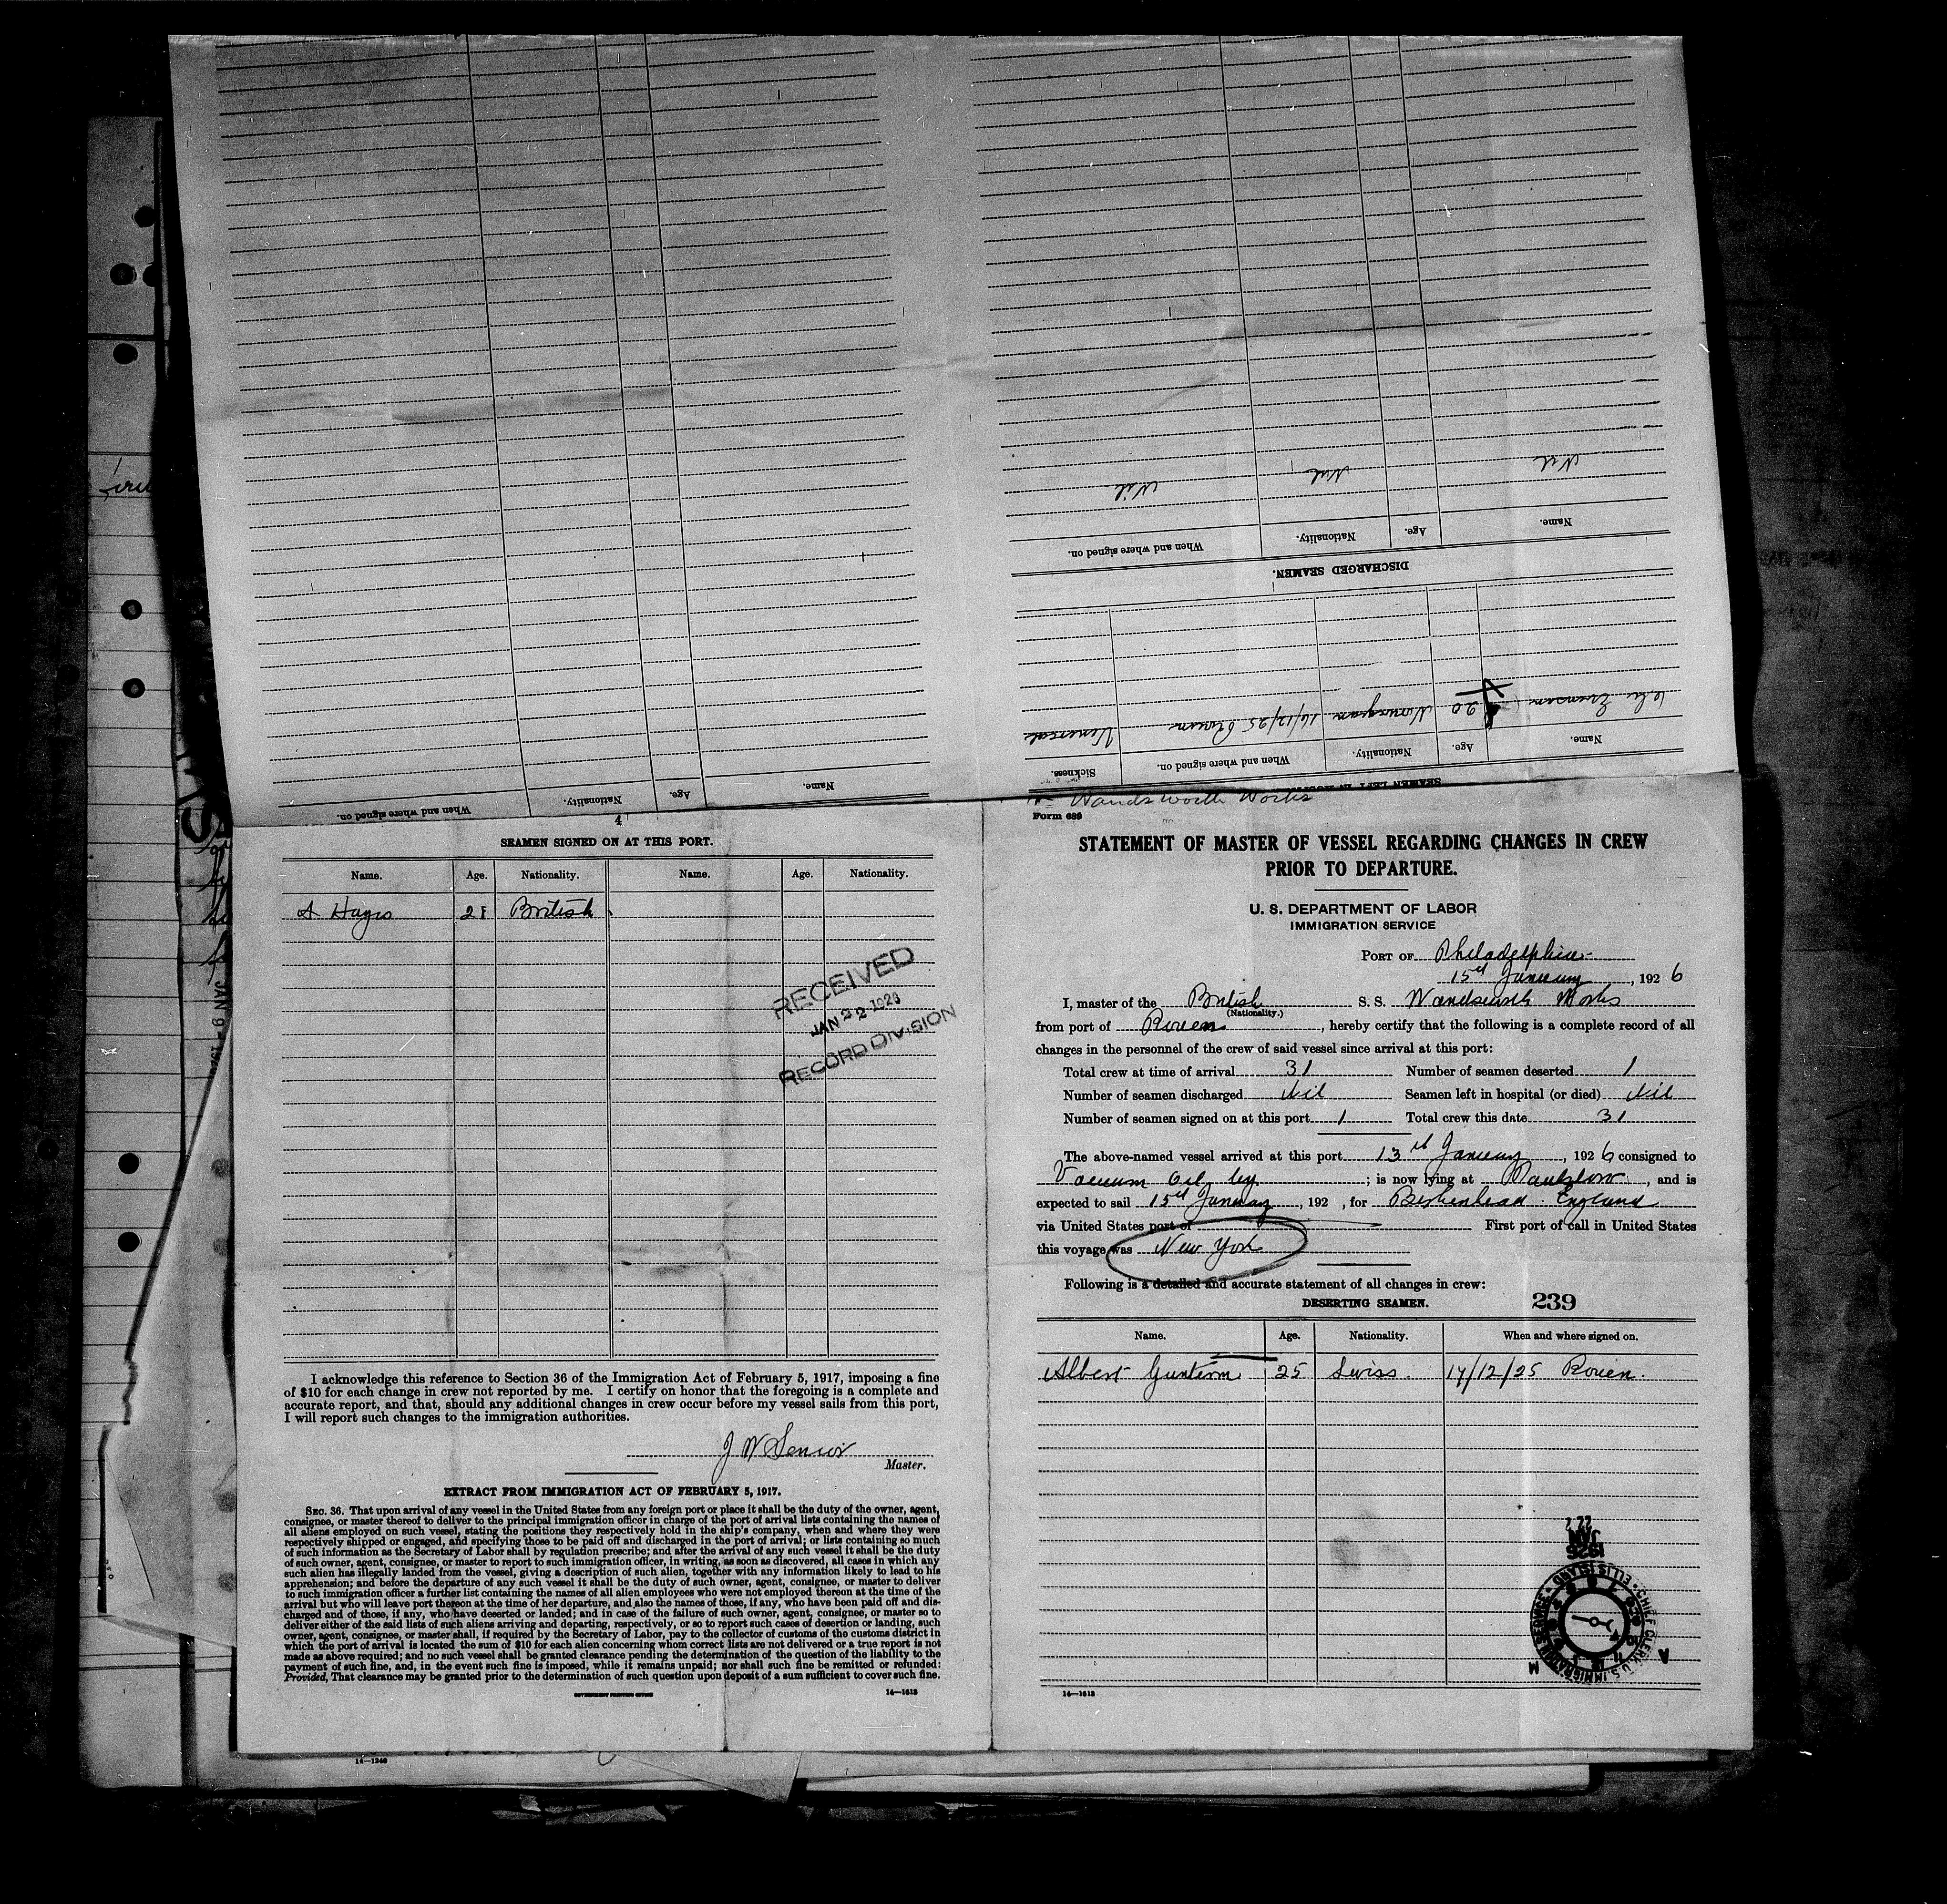 When and where signed on.
Nationality.
Age.
Name.
Nil
Nil
Nil
When and where signed on.
Nationality.
Age.
Name.
DISCHARGED SEAMEN.
20
Norwegian
16/12/25 Rouen
Venereal
Sickness.
When and where signed on.
Nationality.
Age.
Name.
Wandsworth Works
4
SEAMEN SIGNED ON AT THIS PORT.
Name. Age. Nationality. Name. Age. Nationality.
A Hayes 28 British
RECEIVED
JAN 22 1926
RECORD DIVISION
I acknowledge this reference to Section 36 of the Immigration Act of February 5, 1917, imposing a fine
of $10 for each change in crew not reported by me. I certify on honor that the foregoing is a complete and
accurate report, and that, should any additional changes in crew occur before my vessel sails from this port,
I will report such changes to the immigration authorities.
J W Senior
Master.
EXTRACT FROM IMMIGRATION ACT OF FEBRUARY 5, 1917.
SEC. 36. That upon arrival of any vessel in the United States from any foreign port or place it shall be the duty of the owner, agent,
consignee, or master thereof to deliver to the principal immigration officer in charge of the port of arrival lists containing the names of
all aliens employed on such vessel, stating the positions they respectively hold in the ship's company, when and where they were
respectively shipped or engaged, and specifying those to be paid off and discharged in the port of arrival; or lists containing so much
of such information as the Secretary of Labor shall by regulation prescribe; and after the arrival of any such vessel it shall be the duty
of such owner, agent, consignee, or master to report to such immigration officer, in writing, as soon as discovered, all cases in which any
such alien has illegally landed from the vessel, giving a description of such alien, together with any information likely to lead to his
apprehension; and before the departure of any such vessel it shall be the duty of such owner, agent, consignee, or master to deliver
to such immigration officer a further list containing the names of all alien employees who were not employed thereon at the time of the
arrival but who will leave port thereon at the time of her departure, and also the names of those, if any, who have been paid off and dis-
charged and of those, if any, who have deserted or landed; and in case of the failure of such owner, agent, consignee, or master so to
deliver either of the said lists of such aliens arriving and departing, respectively, or so to report such cases of desertion or landing, such
owner, agent, consignee, or master shall, if required by the Secretary of Labor, pay to the collector of customs of the customs district in
which the port of arrival is located the sum of $10 for each alien concerning whom correct lists are not delivered or a true report is not
made as above required; and no such vessel shall be granted clearance pending the determination of the question of the liability to the
payment of such fine, and, in the event such fine is imposed, while it remains unpaid; nor shall such fine be remitted or refunded:
Provided, That clearance may be granted prior to the determination of such question upon deposit of a sum sufficient to cover such fine.
GOVERNMENT PRINTING OFFICE 14—1613
14—1240
Form 689
STATEMENT OF MASTER OF VESSEL REGARDING CHANGES IN CREW
PRIOR TO DEPARTURE.
U. S. DEPARTMENT OF LABOR
IMMIGRATION SERVICE
PORT OF Philadelphia
15th January, 1926
I, master of the British S. S. Wandsworth Works
(Nationality.)
from port of Rouen, hereby certify that the following is a complete record of all
changes in the personnel of the crew of said vessel since arrival at this port:
Total crew at time of arrival 31 Number of seamen deserted 1
Number of seamen discharged Nil Seamen left in hospital (or died) Nil
Number of seamen signed on at this port 1 Total crew this date 31
The above-named vessel arrived at this port 13th January, 1926 consigned to
Vacuum Oil Cy; is now lying at Paulsboro, and is
expected to sail 15th January, 192 , for Birkenhead England
via United States port of First port of call in United States
this voyage was New York
Following is a detailed and accurate statement of all changes in crew:
DESERTING SEAMEN. 239
Name. Age. Nationality. When and where signed on.
Albert 25 Swiss. 17/12/25 Rouen.
JAN 22
1926
CHIEF CLERK, U. S. IMMIGRATION SERVICE • ELLIS ISLAND
A M
14—1613